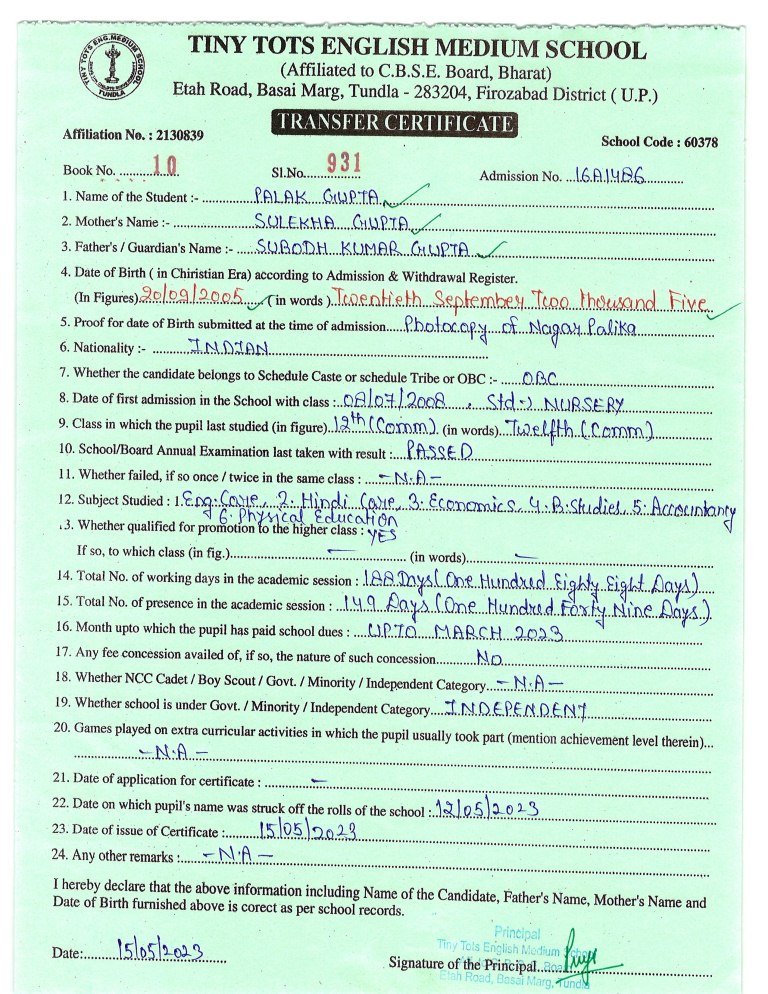 TINY TOTS ENG. MEDIUM SCHOOL
TUNDLA
TINY TOTS ENGLISH MEDIUM SCHOOL
(Affiliated to C.B.S.E. Board, Bharat)
Etah Road, Basai Marg, Tundla - 283204, Firozabad District ( U.P.)
TRANSFER CERTIFICATE
Affiliation No. : 2130839
School Code : 60378
Book No. 10 Sl.No. 931 Admission No. 16A1486
1. Name of the Student :- PALAK GUPTA
2. Mother's Name :- SULEKHA GUPTA
3. Father's / Guardian's Name :- SUBODH KUMAR GUPTA
4. Date of Birth ( in Chiristian Era) according to Admission & Withdrawal Register.
(In Figures) 20/09/2005 ( in words ) Twentieth September Two thousand Five
5. Proof for date of Birth submitted at the time of admission.... Photocopy of Nagar Palika
6. Nationality :- INDIAN
7. Whether the candidate belongs to Schedule Caste or schedule Tribe or OBC :- OBC
8. Date of first admission in the School with class : 08/07/2008 , Std-) NURSERY
9. Class in which the pupil last studied (in figure) 12th (Comm) (in words) Twelfth (Comm)
10. School/Board Annual Examination last taken with result : PASSED
11. Whether failed, if so once / twice in the same class : - N.A -
12. Subject Studied : 1. Eng. Core, 2. Hindi Core, 3. Economics, 4. B. Studies, 5. Accountancy
6. Physical Education
3. Whether qualified for promotion to the higher class : YES
If so, to which class (in fig.) — (in words) —
14. Total No. of working days in the academic session : 188 Days (One Hundred Eighty Eight Days)
15. Total No. of presence in the academic session : 149 Days (One Hundred Forty Nine Days)
16. Month upto which the pupil has paid school dues : UPTO MARCH 2023
17. Any fee concession availed of, if so, the nature of such concession NO
18. Whether NCC Cadet / Boy Scout / Govt. / Minority / Independent Category - N.A -
19. Whether school is under Govt. / Minority / Independent Category INDEPENDENT
20. Games played on extra curricular activities in which the pupil usually took part (mention achievement level therein)...
- N.A -
21. Date of application for certificate : —
22. Date on which pupil's name was struck off the rolls of the school : 12/05/2023
23. Date of issue of Certificate : 15/05/2023
24. Any other remarks : - N.A -
I hereby declare that the above information including Name of the Candidate, Father's Name, Mother's Name and
Date of Birth furnished above is corect as per school records.
Principal
Tiny Tots English Medium School
Date: 15/05/2023
Signature of the Principal
Etah Road, Basai Marg, Tundla